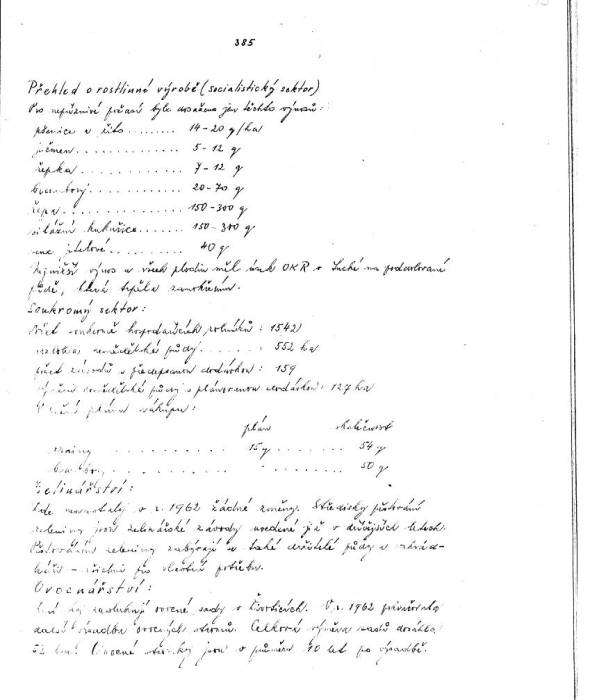 385
Přehled o rostlinné výrobě (socialistický sektor)
Pro nepříznivé počasí bylo dosaženo jen těchto výnosů:
pšenice a žito ........ 14-20 q/ha
ječmen .............. 5-12 q
řepka ............... 7-12 q
brambory ............. 20-70 q
řepa ................ 150-300 q
silážní kukuřice ....... 150-300 q
seno jetelové .......... 40 q
Nejnižší výnos u všech plodin měl úsek OKR v Suché na poddolované
půdě, která trpěla zamokřením.
Soukromý sektor:
Počet soukromě hospodařících rolníků: 1542
zemědělské půdy ....... : 552 ha
počet závodů s předepsanou dodávkou: 159
zemědělské půdy s plánovanou dodávkou: 127 ha
plánu nákupu:
plán skutečnost
15 q ....... 54 q
brambory ....... 50 q
Zelinářství:
Zde nenastaly v r. 1962 žádné změny. Středisky pěstování
zeleniny jsou zelinářské závody uvedené již v dřívějších letech.
Pěstováním zeleniny zabývají se také držitelé půdy a zahrád-
káři - většinou pro vlastní potřebu.
Ovocnářství:
zasluhují ovocné sady v V r. 1962
další výsadba ovocných stromů. Celková výměra sadů dosáhla
ha. Ovocné stromky jsou v průměru 10 let po výsadbě.